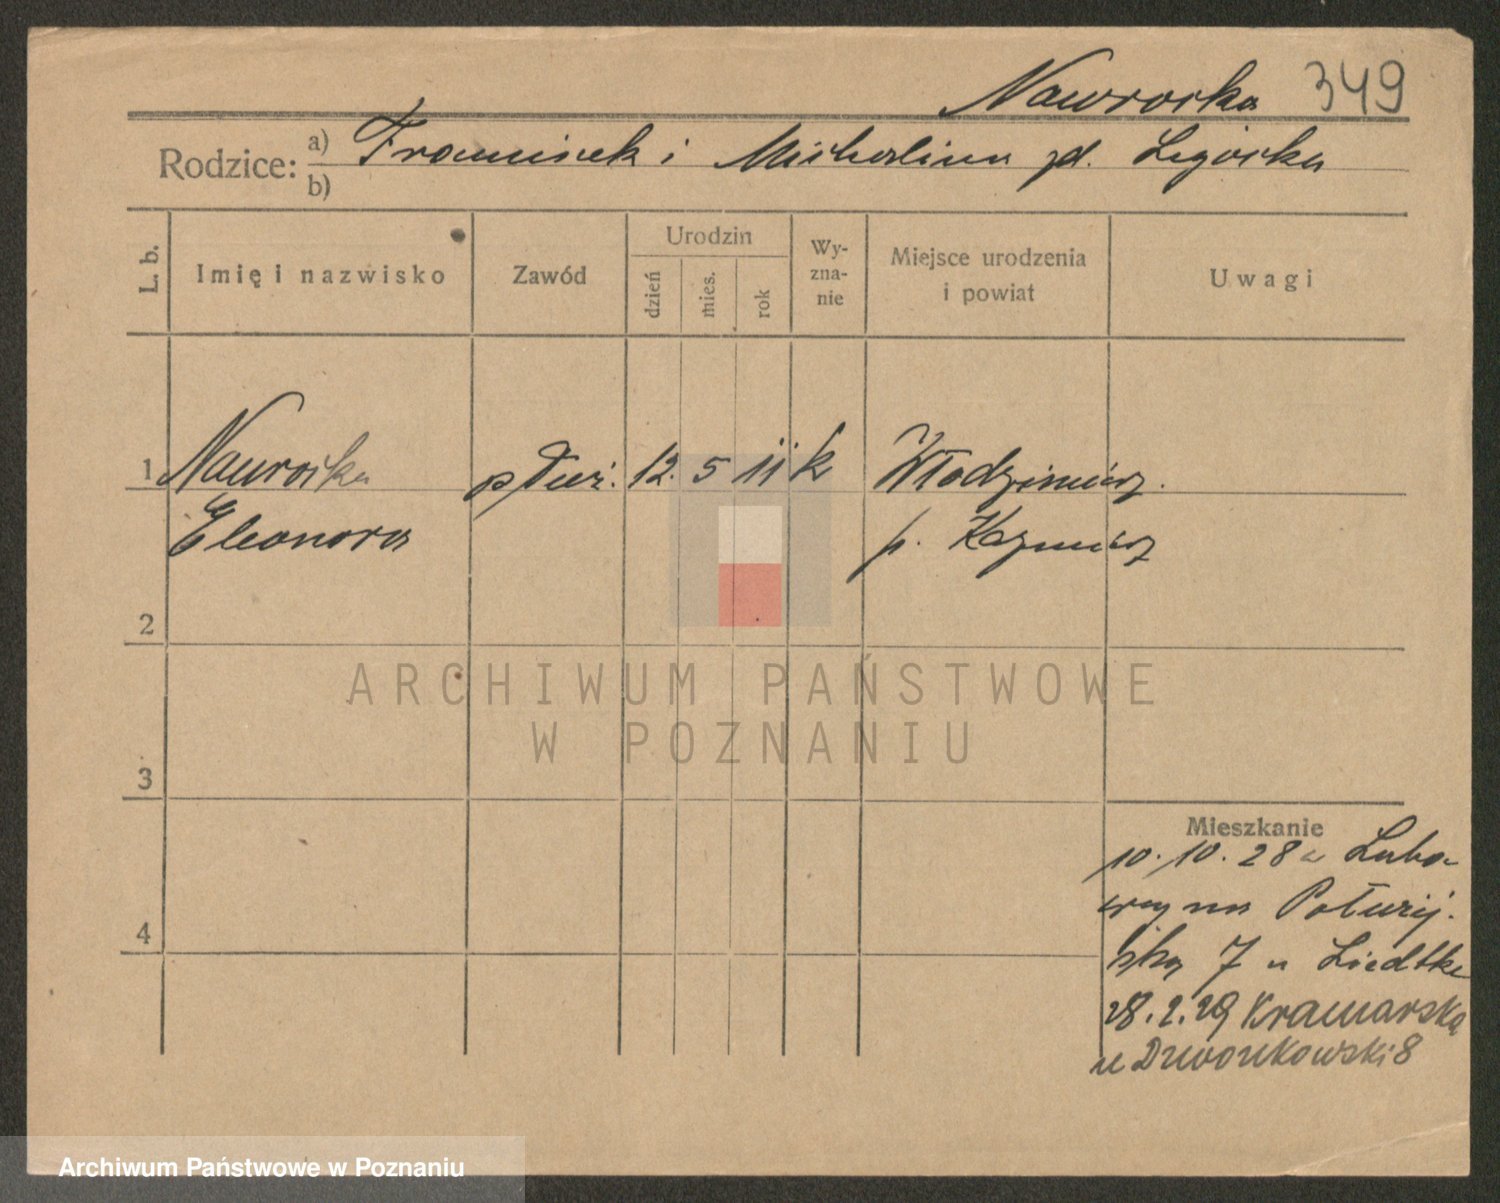 Nawrocka 349
Rodzice: a) Franciszek i Michalina zd. Zgórska
b)
L. b. Imię i nazwisko Zawód Urodzin dzień mies. rok Wy-zna-nie Miejsce urodzenia i powiat Uwagi
1 Nawrocka służ. 12. 5 11 k Włodzimierz.
Eleonora p. Kazmierz
2
ARCHIWUM PAŃSTWOWE
W POZNANIU
3
Mieszkanie
10. 10. 28 z Lubo-
na
4
7 u Liedtke
28. 2. 29 Kramarska
u Dzwonkowski 8
Archiwum Państwowe w Poznaniu